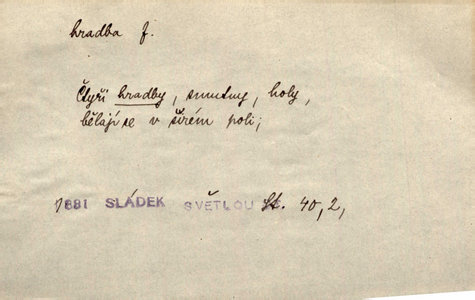 hradba f.
Čtyři hradby, smutny, holy,
bělají se v širém poli;
1881 SLÁDEK SVĚTLOU St. 40, 2,